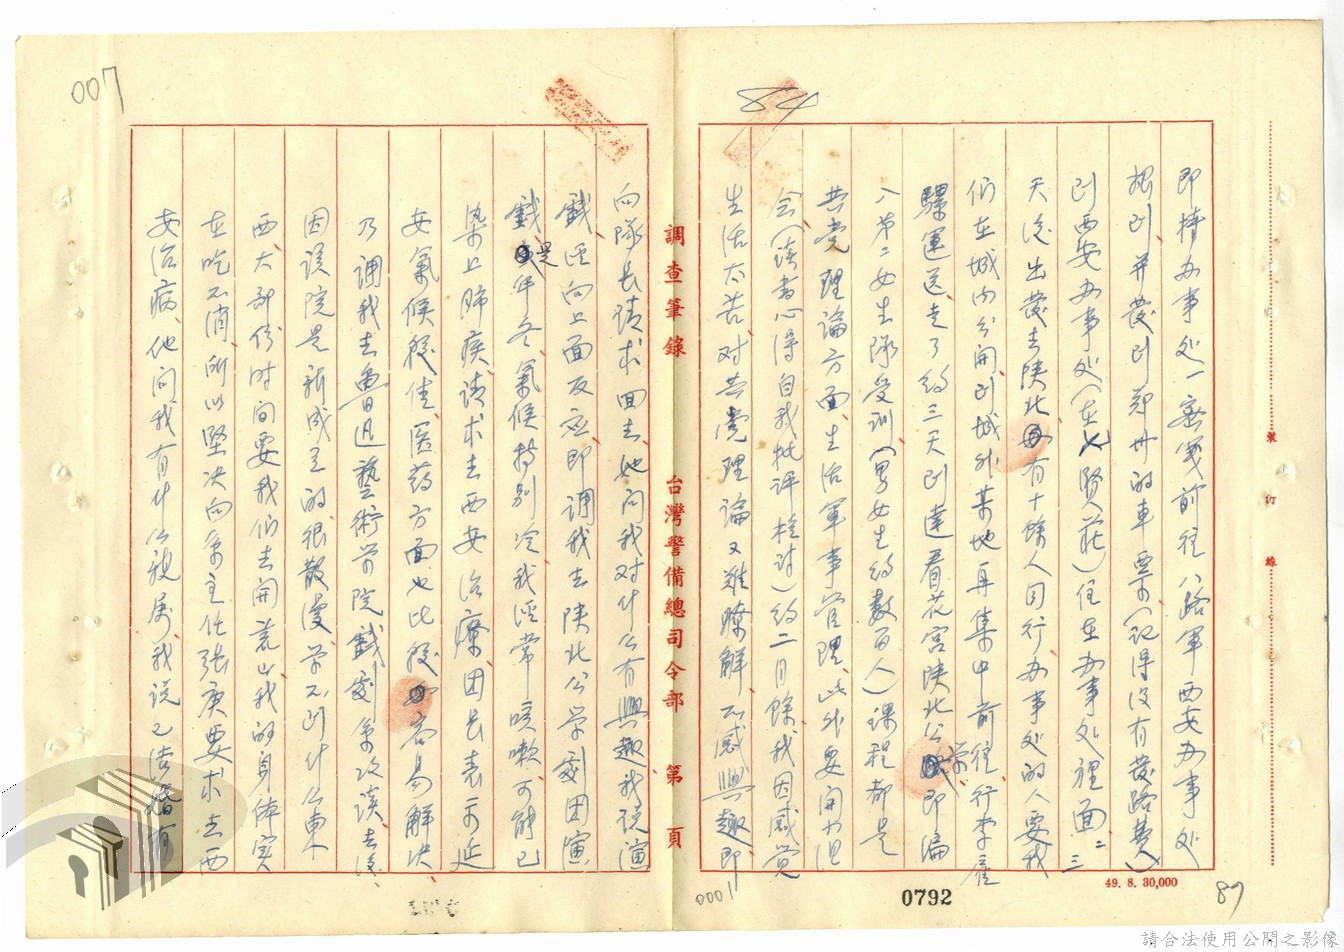 即持办事处一密笺前往八路军西安办事处
报到并发到郑州的車票(記得没有发路费)
到西安办事处(在七賢莊)住在办事处裡面二三
天后出发去陕北有十馀人同行办事处的人要我
们在城内分開到城外某地再集中前往行李雇
騾運送走了約三天到達看花宫陕北公学即編
入第二女生隊受訓(男女生約数百人)課程都是
共党理論方面生活軍事管理此外要開小组
会(读書心得自我批评检讨)約二月馀我因感觉
生活太苦对共党理論又难瞭解不感興趣即
調查筆錄 台灣警備總司令部 第 頁
向隊长請求回去她问我对什么有興趣我說演
戲逕向上面反应即調我去陕北公学剧团演
戲是年冬氣候特别冷我逕常咳嗽可能已
染上肺疾請求去西安治療团长表示延
安氣候較佳医药方面也比較容易解决
乃調我去魯迅藝術学院戲剧系攻读去後
因该院是新成立的很散漫学不到什么東
西大部份时间要我们去開荒山我的身体实
在吃不消所以堅决向系主任張庚要求去西
安治病他问我有什么親属我说已结婚有
007
84
裝 訂 線
49. 8. 30,000
0792
0001
87
請合法使用公開之影像